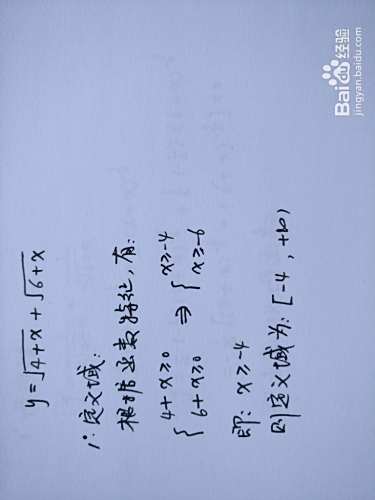 y=√4+x + √6+x
1°定义域:
根据函数特征,有:
{4+x≥0 6+x≥0 ⇒ {x≥-4 x≥-6
即: x≥-4
则定义域为: [-4, +∞)
Baidu经验
jingyan.baidu.com